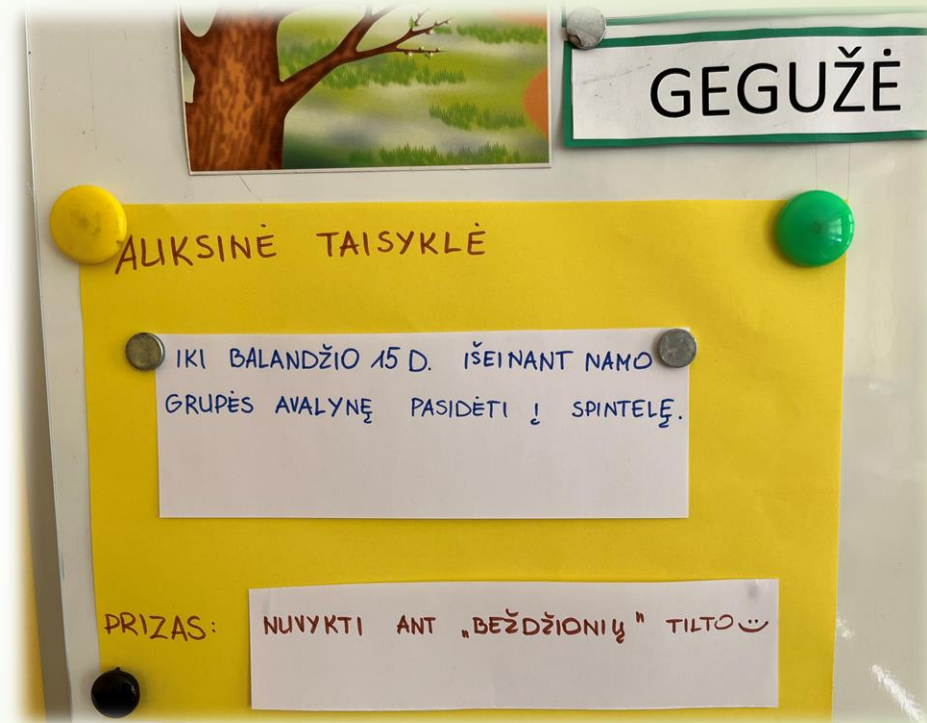 GEGUŽĖ
AUKSINĖ TAISYKLĖ
IKI BALANDŽIO 15 D. IŠEINANT NAMO
GRUPĖS AVALYNĘ PASIDĖTI Į SPINTELĘ.
PRIZAS: NUVYKTI ANT „BEŽDŽIONIŲ" TILTO